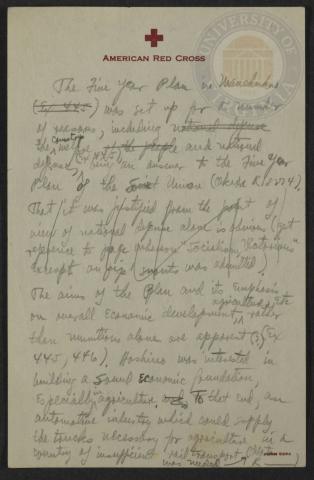 AMERICAN RED CROSS
The Five Year Plan in Manchukuo
(Ex 445) was set up for a number
of reasons, including national defense
the welfare of the people and national
defense an answer to the Five Year
Plan of the Soviet Union (Okada R 18274).
That it was justified from the point of
view of national defense alone is obvious (get
reference to page in
except on
was admitted).
The aims of the Plan and its emphasis
on overall economic development, agriculture, etc rather
than munitions alone are apparent (Ex
445, 446). Hoshino was interested in
building a sound economic foundation,
especially in agriculture. To that end, an
automotive industry which could supply
the trucks necessary for agriculture in a
country of insufficient rail transport
was needed